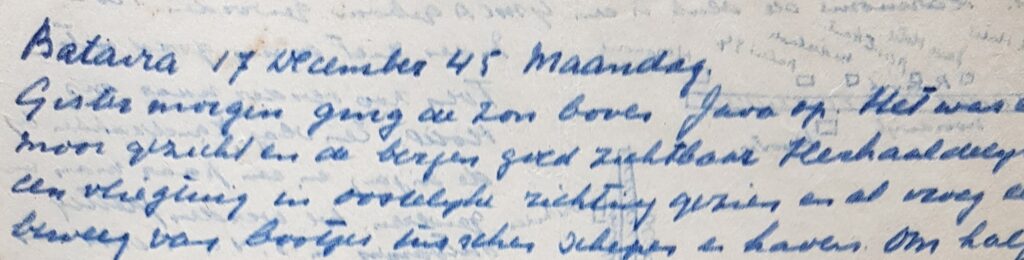 Batavia 17 December 45 Maandag.
Gister morgen ging de zon boven Java op. Het was e
mooi gezicht en de bergen goed zichtbaar Herhaaldelijk
een vliegtuig in oostelijke richting gezien en al vroeg ee
beweeg van bootjes tusschen schepen en haven. Om half